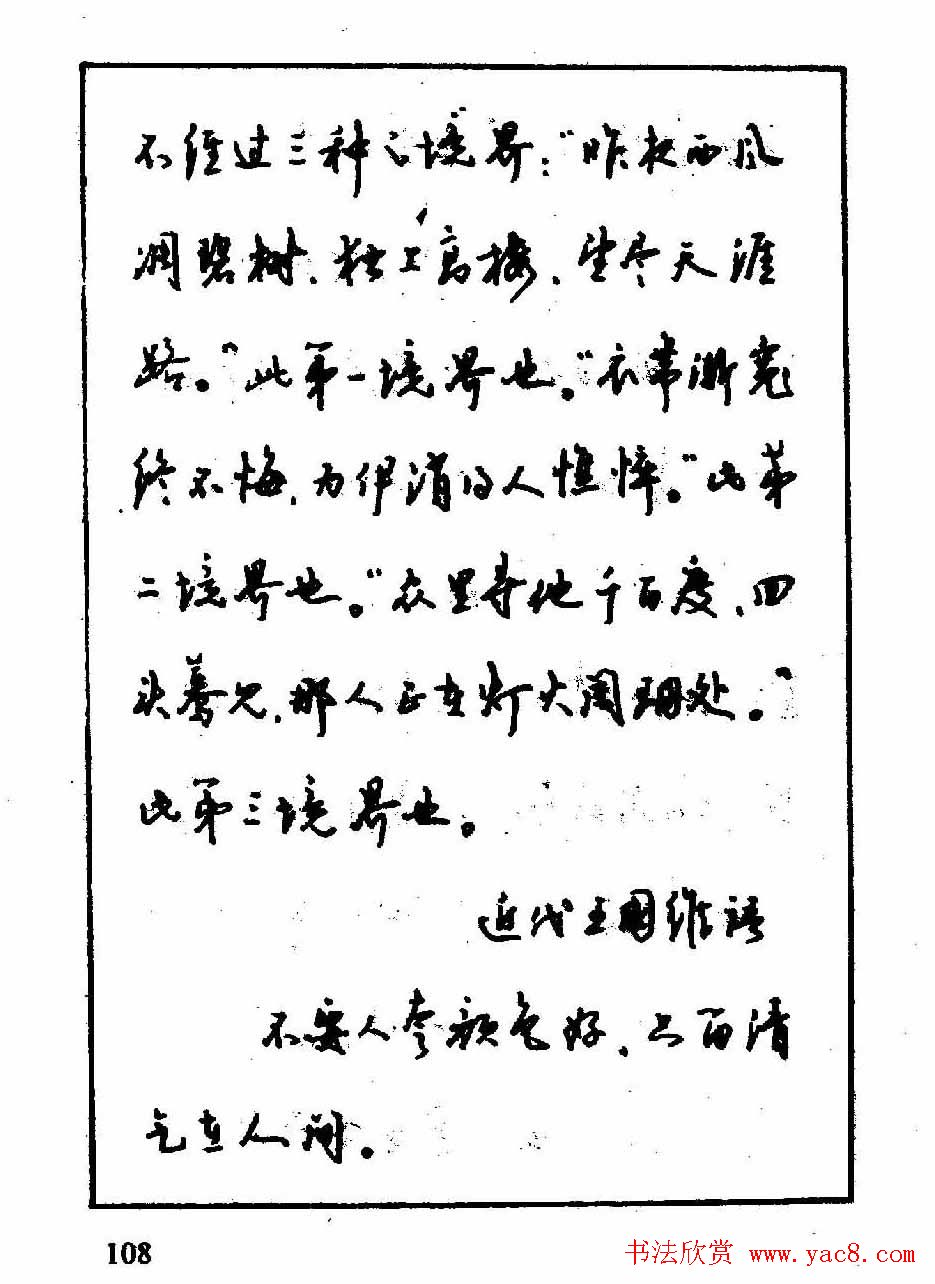 不经过三种之境界：“昨夜西风
凋碧树，独上高楼，望尽天涯
路。”此第一境界也。“衣带渐宽
终不悔，为伊消得人憔悴。”此第
二境界也。“众里寻他千百度，回
头蓦见，那人正在灯火阑珊处。”
此第三境界也。
近代王国维语
不要人夸颜色好，只留清
气在人间。
108
书法欣赏 www.yac8.com